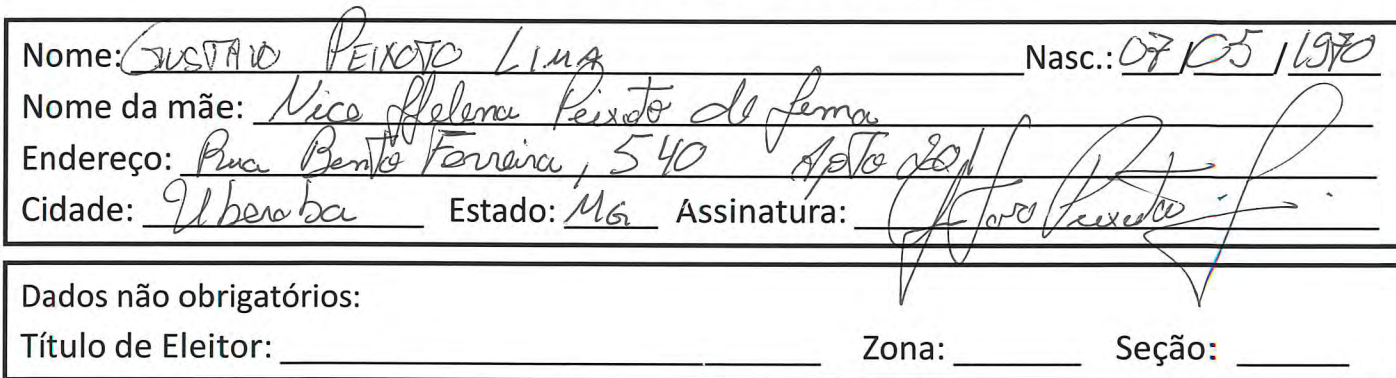 Nome: GUSTAVO PEIXOTO LIMA Nasc.: 07/05/1970
Nome da mãe: Nice Helena Peixoto de Lima
Endereço: Rua Bento Ferreira, 540 Apto 201
Cidade: Uberaba Estado: MG Assinatura: Peixoto
Dados não obrigatórios:
Título de Eleitor: Zona: Seção: